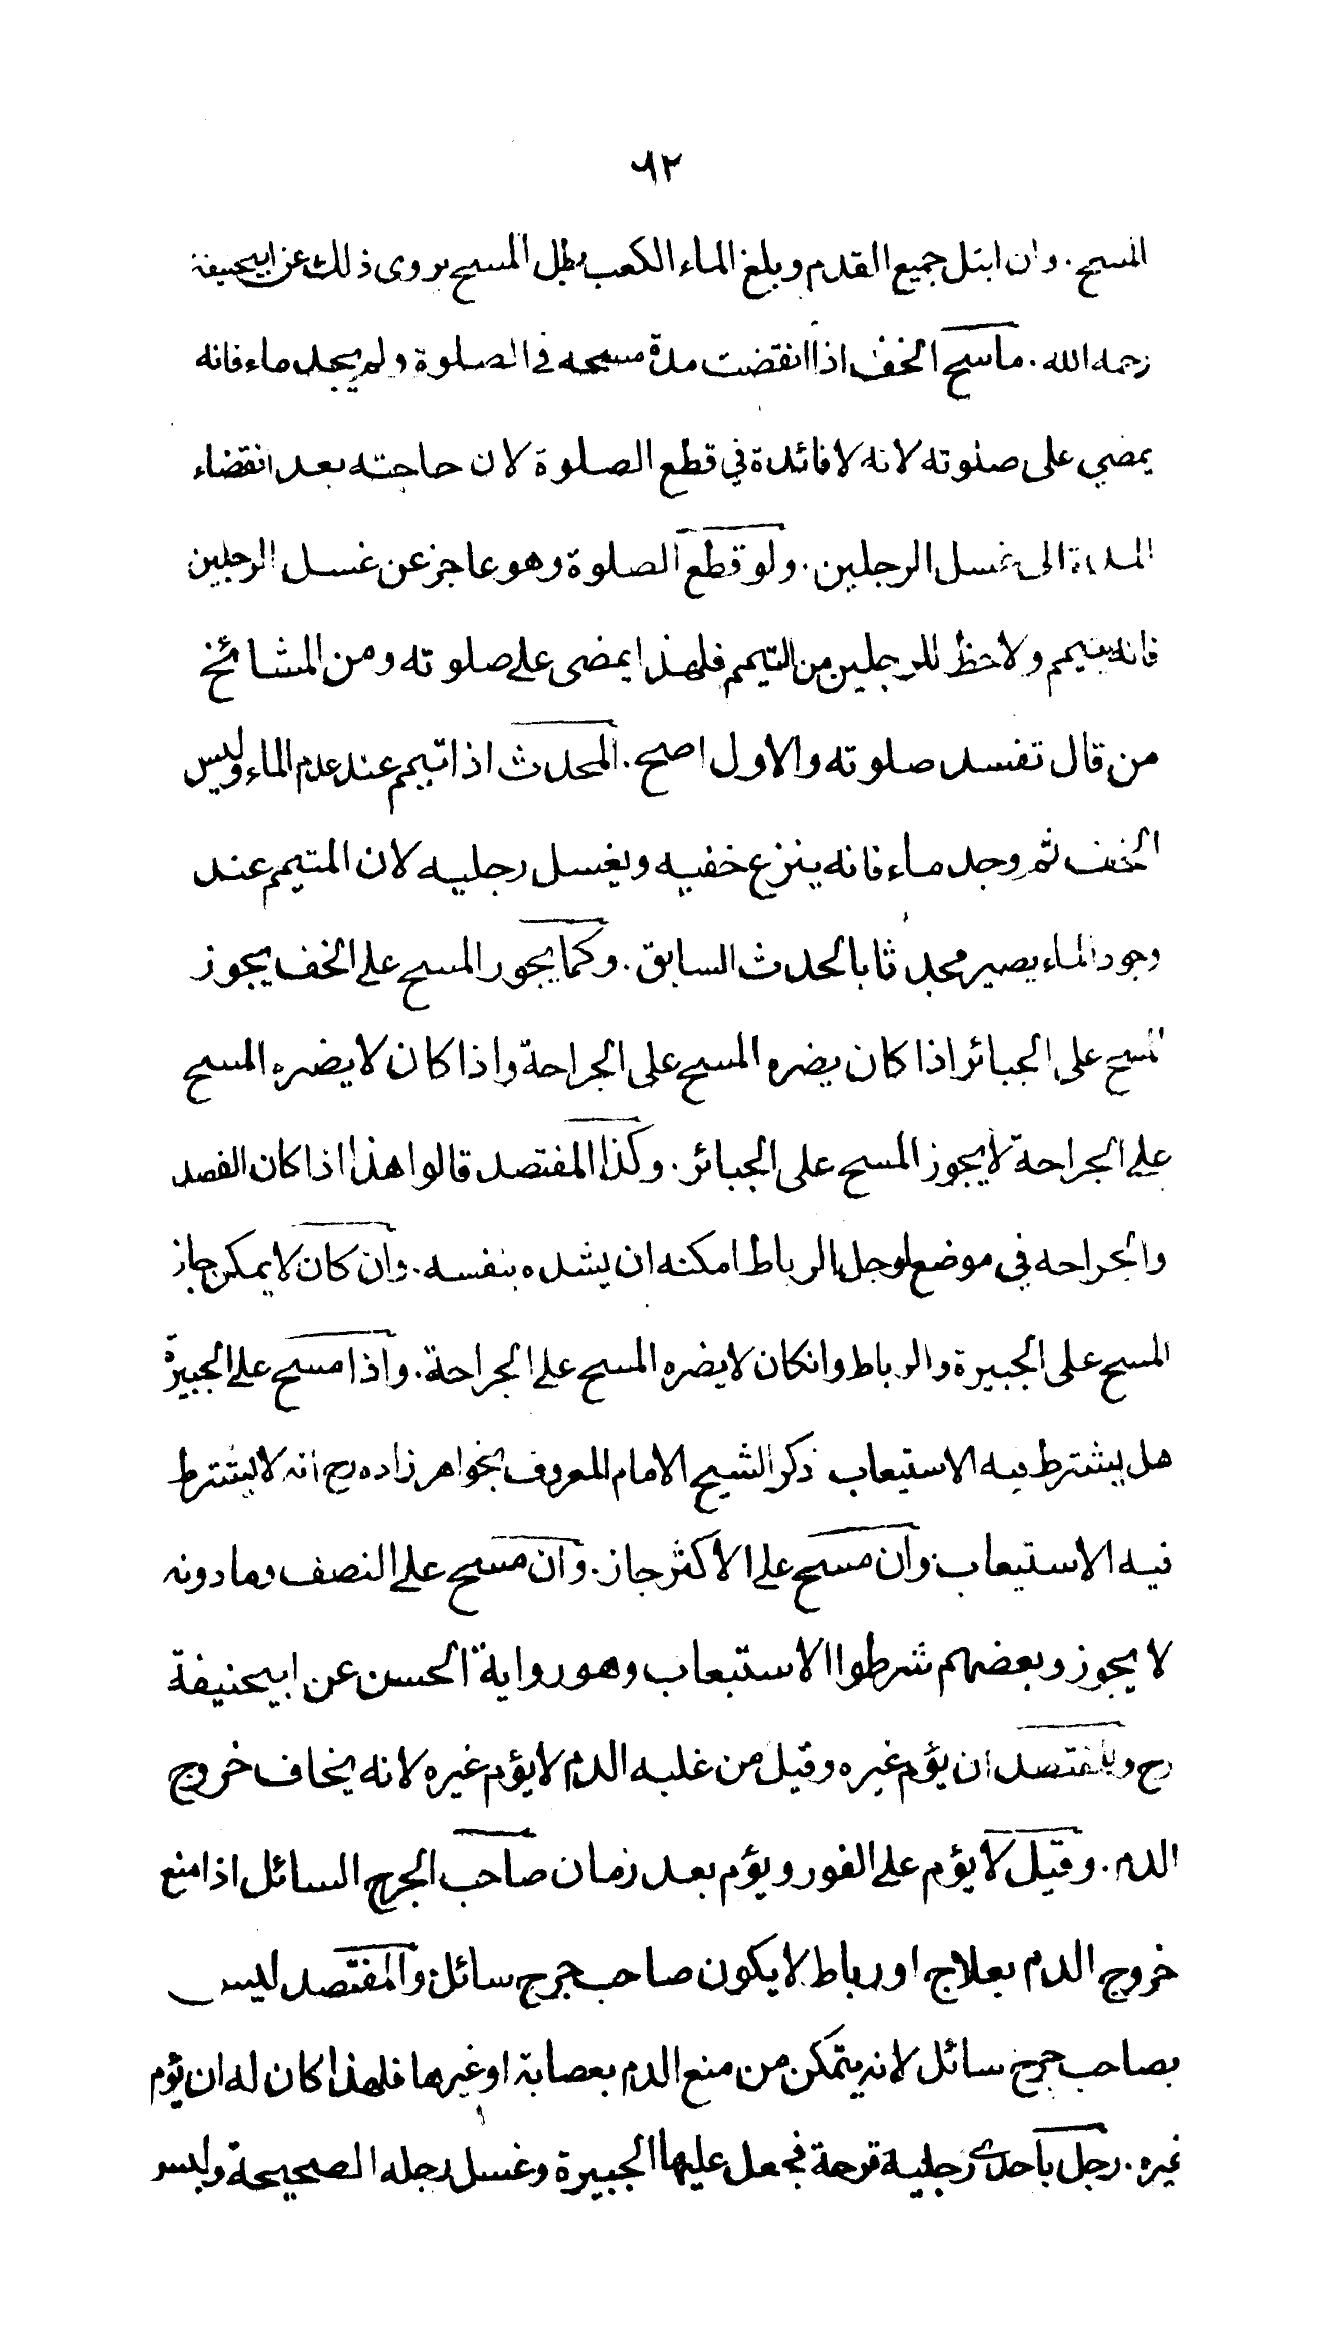 ٩٢
المسح . وان ابتل جميع القدم وبلغ الماء الكعب بطل المسح يروى ذلك عن ابيحنيفة
رحمه الله . ماسح الخف اذا انقضت مدة مسحه في الصلوة ولم يجد ماء فانه
يمضي على صلوته لانه لا فائدة في قطع الصلوة لان حاجته بعد انقضاء
المدة الى غسل الرجلين . ولو قطع الصلوة وهو عاجز عن غسل الرجلين
فانه يتيمم ولا حظ للرجلين من التيمم فلهذا يمضى على صلوته ومن المشائخ
من قال تفسد صلوته والاول اصح . المحدث اذا تيمم عند عدم الماء وليس
الخف ثم وجد ماء فانه ينزع خفيه ويغسل رجليه لان المتيمم عند
وجود الماء يصير محدثا بالحدث السابق . وكما يجوز المسح على الخف يجوز
المسح على الجبائر اذا كان يضره المسح على الجراحة واذا كان لا يضره المسح
على الجراحة لا يجوز المسح على الجبائر . وكذا المفتصد قالوا هذا اذا كان الفصد
والجراحه في موضع لوحل الرباط امكنه ان يشده بنفسه . وان كان لا يمكن جاز
المسح على الجبيرة والرباط وانكان لا يضره المسح على الجراحة . واذا مسح على الجبيرة
هل يشترط فيه الاستيعاب ذكر الشيخ الامام المعروف بخواهر زاده رح انه لا يشترط
فيه الاستيعاب وان مسح على الاكثر جاز . وان مسح على النصف وما دونه
لا يجوز وبعضهم شرطوا الاستيعاب وهو رواية الحسن عن ابيحنيفة
رح وللمفتصد ان يؤم غيره وقيل من غلبه الدم لا يؤم غيره لانه يخاف خروج
الدم . وقيل لا يؤم على الفور ويؤم بعد زمان صاحب الجرح السائل اذا منع
خروج الدم بعلاج او رباط لا يكون صاحب جرح سائل والمفتصد ليس
بصاحب جرح سائل لانه يتمكن من منع الدم بعصابة او غيرها فلهذا كان له ان يؤم
غيره . رجل باحدى رجليه قرحة فجعل عليها الجبيرة وغسل رجله الصحيحة ولبس